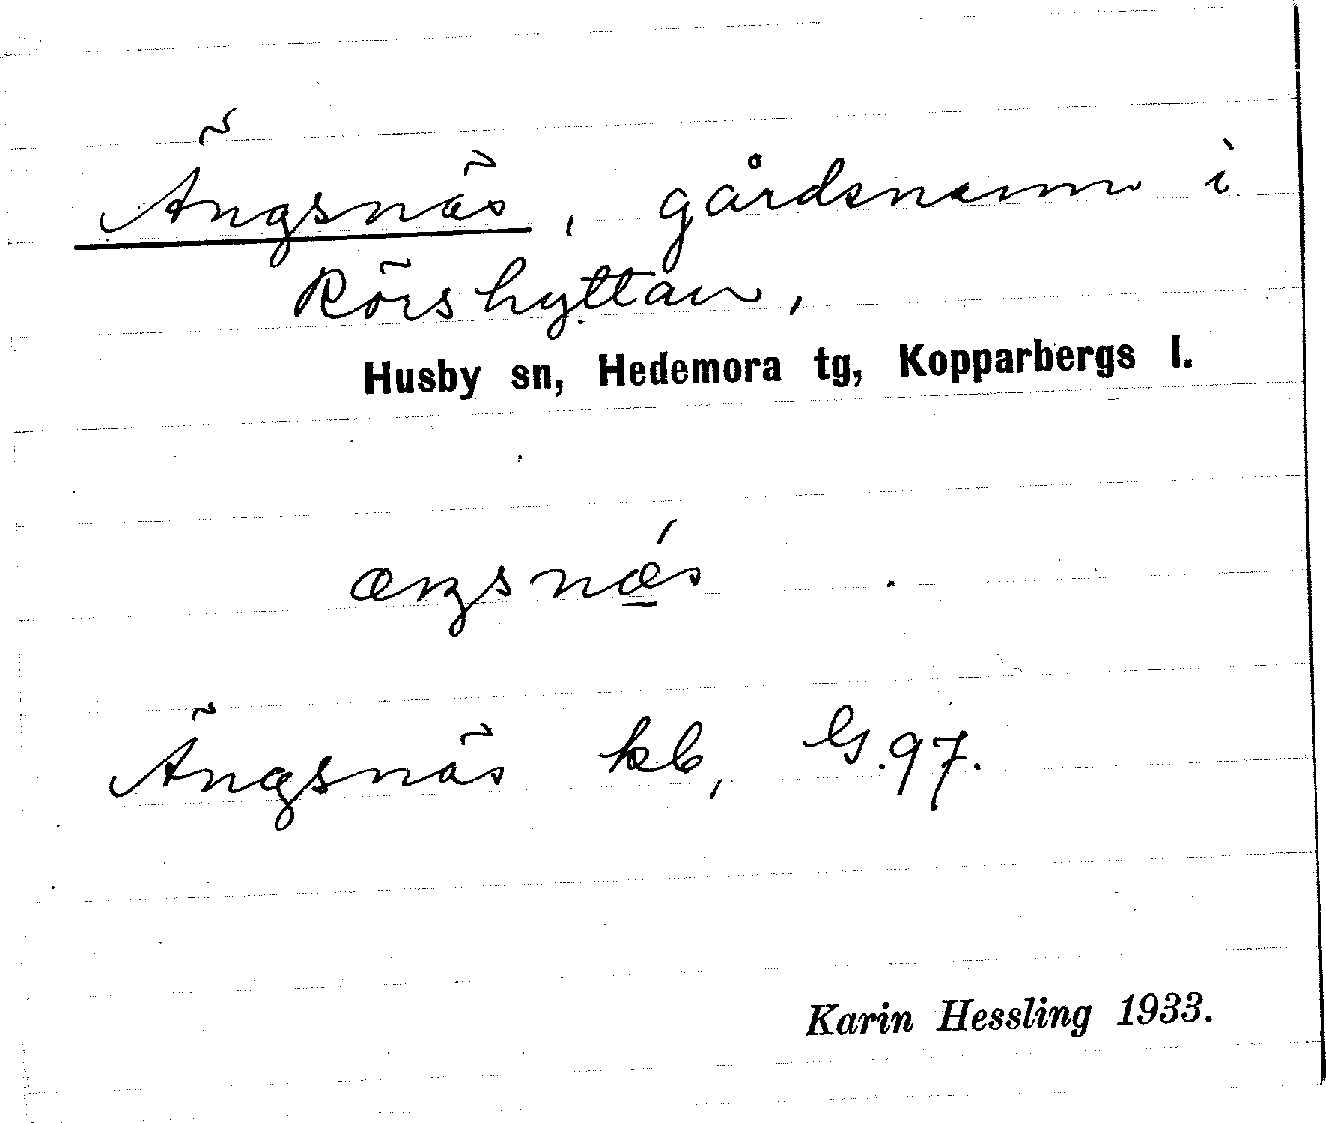 Ängsnäs, gårdsnamn i
Rörshyttan,
Husby sn, Hedemora tg, Kopparbergs l.
æŋsnǽ̱s
Ängsnäs kb, G.97.
Karin Hessling 1933.